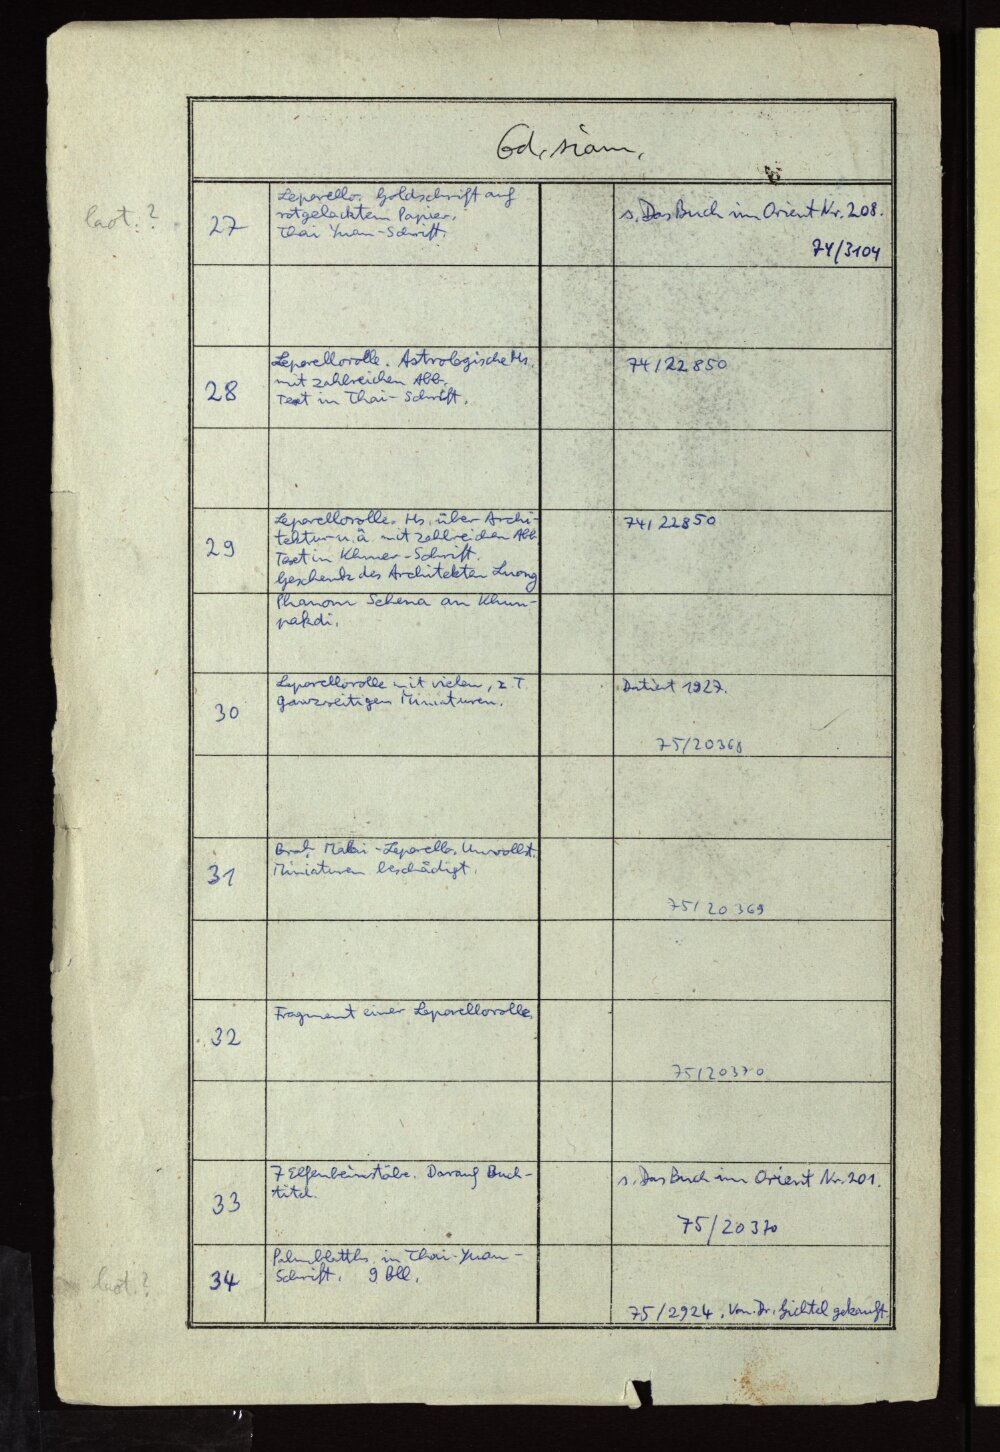 Cod. siam.
laot.?
27
Leporello. Goldschrift auf
rotgelacktem Papier.
Thai Yuan-Schrift.
s. Das Buch im Orient Nr. 208.
74/3104
28
Leporellorolle. Astrologische Hs.
mit zahlreichen Abb.
Text in Thai-Schrift.
74/22850
29
Leporellorolle. Hs. über Archi-
tektur u. ä. mit zahlreichen Abb.
Text in Khmer-Schrift.
Geschenk des Architekten Luong
Phanom Schena an Khun-
pakdi.
74/22850
30
Leporellorolle mit vielen, z. T.
ganzseitigen Miniaturen.
Datiert 1927.
75/20368
31
Malai-Leporello. Unvollst.
Miniaturen beschädigt.
75/20369
32
Fragment einer Leporellorolle.
75/20370
33
7 Elfenbeinstäbe. Darauf Buch-
titel.
s. Das Buch im Orient Nr. 201.
75/20370
laot.?
34
Palmblatths. in Thai-Yuan-
Schrift. 9 Bll.
75/2924. Von Dr. gekauft.